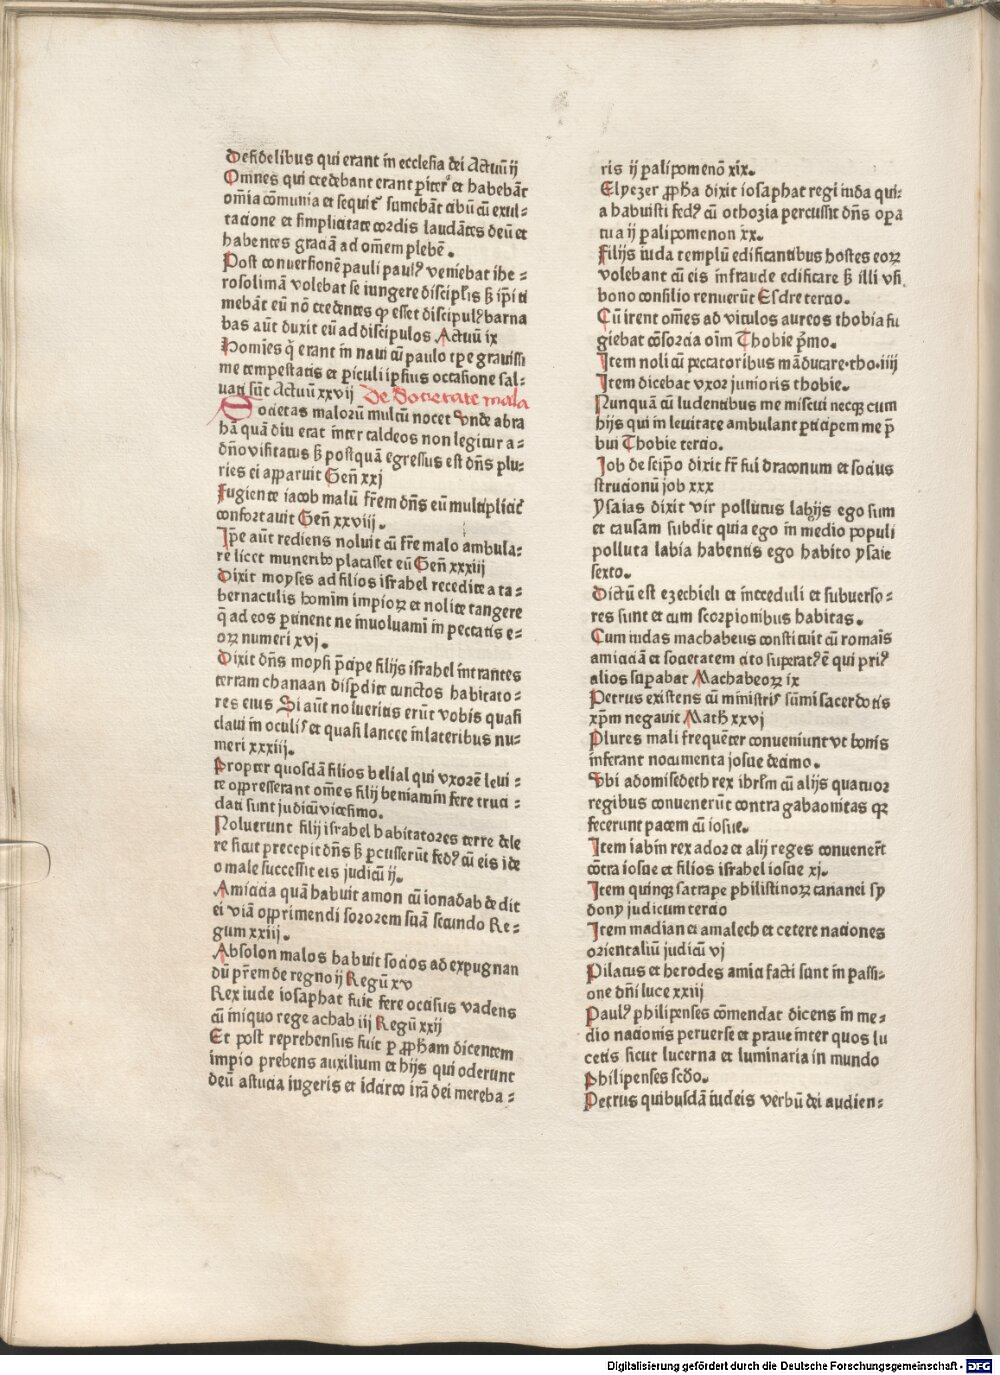 Defidelibus qui erant in ecclesia dei Actuū ij
Omnes qui credebant erant pariter et habebāt
om̄ia cōmunia et sequit᷑ sumebāt cibū cū exul⸗
tacione et simplicitate cordis laudātes deū et
habentes graciā ad om̄em plebē.
Post conuersionē pauli paulꝰ veniebat ihe⸗
rosolimā volebat se iungere discipl̄is sꝫ ip̄i ti
mebāt eū nō credentes ꝙ esset discipulꝰ barna
bas aūt duxit eū ad discipulos Actuū ix
Homīes q̄ erant in naui cū paulo tp̄e grauissi
me tempestatis et ꝑiculi ipsius occasione sal⸗
uati sūt Actuū xxvij De Societate mala
Societas malorū multū nocet vnde abra
hā quādiu erat inter caldeos non legitur a⸗
dn̄o visitatus sꝫ postquā egressus est dn̄s plu⸗
ries ei apparuit Gen̄ xxj
Fugiente iacob malū fr̄em dn̄s eū multiplicit᷑
confortauit Gen̄ xxviij.
Ip̄e aūt rediens noluit cū fr̄e malo ambula⸗
re licet muneribꝰ placasset eū Gen̄ xxxiij
Dixit moyses ad filios israhel recedite a ta⸗
bernaculis homīm impioꝝ et nolite tangere
q̄ ad eos ꝑtinent ne inuoluamī in peccatis e⸗
oꝝ numeri xvj.
Dixit dn̄s moysi p̄cipe filijs israhel intrantes
terram chanaan disꝑdite cunctos habitato⸗
res eius Si aūt nolueritis erūt vobis quasi
claui in oculis et quasi lancee in lateribus nu⸗
meri xxxiij.
Propter quosdā filios belial qui vxorē leui⸗
te oppresserant om̄es filij beniamin fere truci⸗
dati sunt judicū vicesimo.
Noluerunt filij israhel habitatores terre dele
re sicut precepit dn̄s sꝫ ꝑcusserūt fedꝰ cū eis ide
o male successit eis judicū ij.
Amicicia quā habuit amon cū ionadab dedit
ei viā opprimendi sororem suā secundo Re⸗
gum xxiij.
Absolon malos habuit socios ad expugnan
dū pr̄em de regno ij Regū xv
Rex iude iosaphat fuit fere occisus vadens
cū iniquo rege achab iij Regū xxij
Et post reprehensus fuit ꝑ ꝓpham dicentem
impio prebens auxilium et hijs qui oderunt
deū astucia iugeris et idcirco irā dei mereba⸗
ris ij palipomenō xix.
Elyezer ꝓpha dixit iosaphat regi iuda qui⸗
a habuisti fedꝰ cū othozia percussit dn̄s opa
tua ij palipomenon xx.
Filijs iuda templū edificantibus hostes eoꝝ
volebant cū eis in fraude edificare sꝫ illi vsi
bono consilio renuerūt Esdre tercio.
Cū irent om̄es ad vitulos aureos thobia fu
giebat cōsorcia oīm Thobie p̄mo.
Item noli cū peccatoribus māducare·tho·iiij
Item dicebat vxor junioris thobie.
Nunquā cū ludentibus me miscui necꝫ cum
hijs qui in leuitate ambulant ꝑticipem me p̄
bui Thobie tercio.
Job de seip̄o dixit fr̄ fui draconum et socius
strucionū job xxx
ysaias dixit vir pollutus labijs ego sum
et causam subdit quia ego in medio populi
polluta labia habentis ego habito ysaie
sexto.
Dictū est ezechieli et increduli et subuerso⸗
res sunt et cum scorpionibus habitas.
Cum iudas machabeus constituit cū romaīs
amiciciā et societatem cito superatꝰ ē qui priꝰ
alios supabat Machabeoꝝ ix
Petrus existens cū ministris sūmi sacerdotis
xp̄m negauit Math xxvj
Plures mali frequēter conueniunt vt bonis
inferant nocumenta josue decimo.
Vbi adonisedech rex ihrl̄m cū alijs quatuor
regibus conuenerūt contra gabaonitas qꝫ
fecerunt pacem cū iosue.
Item iabin rex ador et alij reges conuener̄t
cōtra iosue et filios israhel iosue xj.
Item quinqꝫ satrape philistinoꝝ cananei sy
dony judicum tercio
Item madian et amalech et cetere naciones
orientaliū judicū vj
Pilatus et herodes amici facti sunt in passi⸗
one dn̄i luce xxiij
Paulꝰ philipenses cōmendat dicens in me⸗
dio nacionis peruerse et praue inter quos lu
cetis sicut lucerna et luminaria in mundo
Philipenses scd̄o.
Petrus quibusdā iudeis verbū dei audien⸗
Digitalisierung gefördert durch die Deutsche Forschungsgemeinschaft - DFG